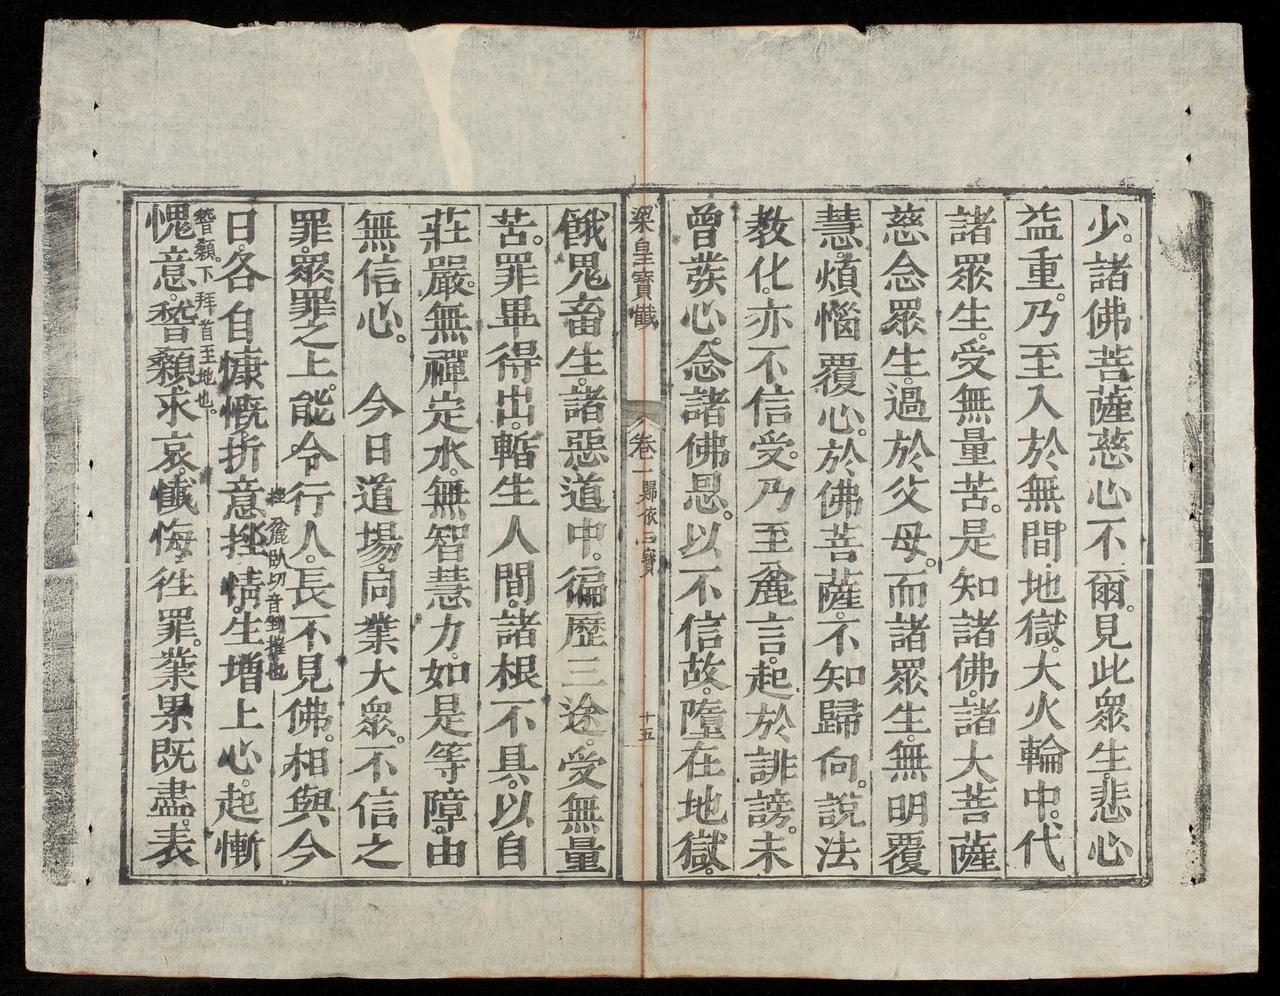 少。諸佛菩薩慈心不爾。見此眾生。悲心
益重。乃至入於無間地獄。大火輪中。代
諸眾生。受無量苦。是知諸佛。諸大菩薩
慈念眾生。過於父母。而諸眾生。無明覆
慧。煩惱覆心。於佛菩薩。不知歸向。說法
教化。亦不信受。乃至麁言。起於誹謗。未
曾發心。念諸佛恩。以不信故。墮在地獄。
梁皇寶懺
卷一 歸依三寶
十五
餓鬼畜生。諸惡道中。徧歷三途。受無量
苦。罪畢得出。暫生人間。諸根不具。以自
莊嚴。無禪定水。無智慧力。如是等障。由
無信心。　今日道場。同業大眾。不信之
罪。眾罪之上。能令行人。長不見佛。相與今
挫 麁臥切音剉摧也
日。各自慷慨。折意挫情。生增上心。起慚
稽顙。下拜首至地也。
愧意。稽顙求哀。懺悔往罪。業累既盡。表